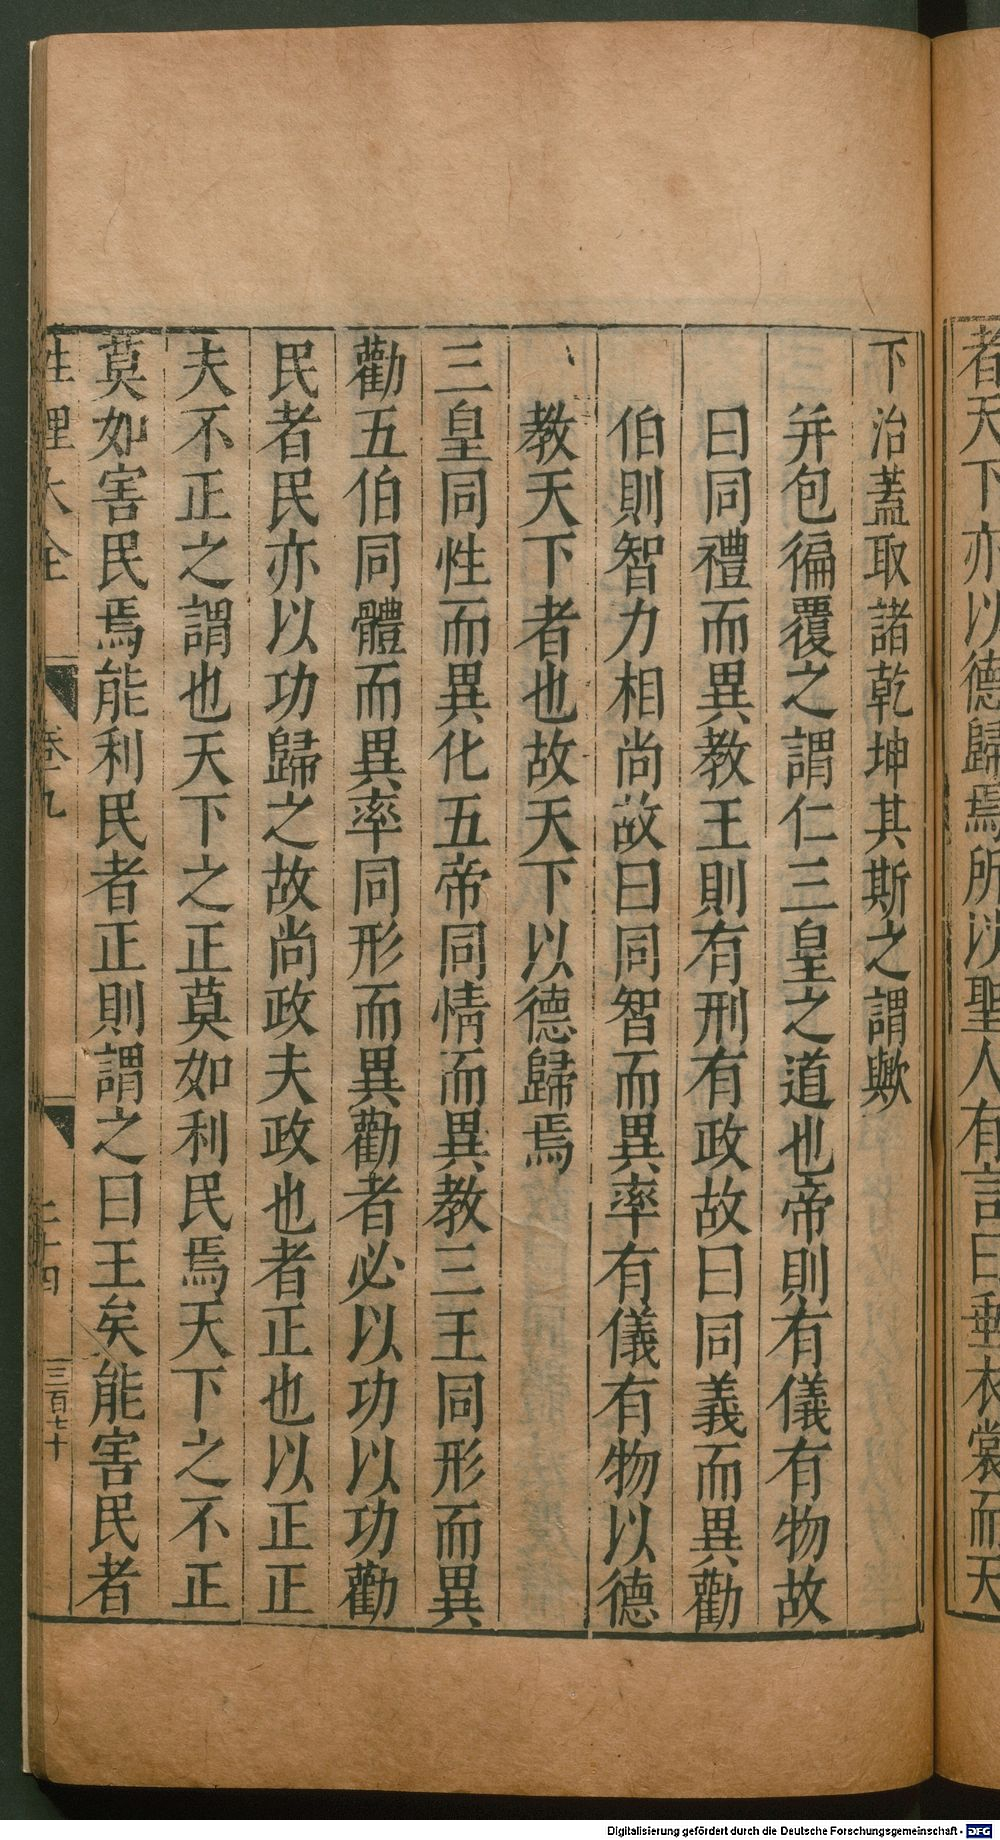 者天下亦以德歸焉所以聖人有言曰垂衣裳而天
下治蓋取諸乾坤其斯之謂歟
并包徧覆之謂仁三皇之道也帝則有儀有物故
曰同禮而異教王則有刑有政故曰同義而異勸
伯則智力相尚故曰同智而異率有儀有物以德
教天下者也故天下以德歸焉
三皇同性而異化五帝同情而異教三王同形而異
勸五伯同體而異率同形而異勸者必以功以功勸
民者民亦以功歸之故尚政夫政也者正也以正正
夫不正之謂也天下之正莫如利民焉天下之不正
莫如害民焉能利民者正則謂之曰王矣能害民者
性理大全 卷九 二十四 三百七十
Digitalisierung gefördert durch die Deutsche Forschungsgemeinschaft - DFG